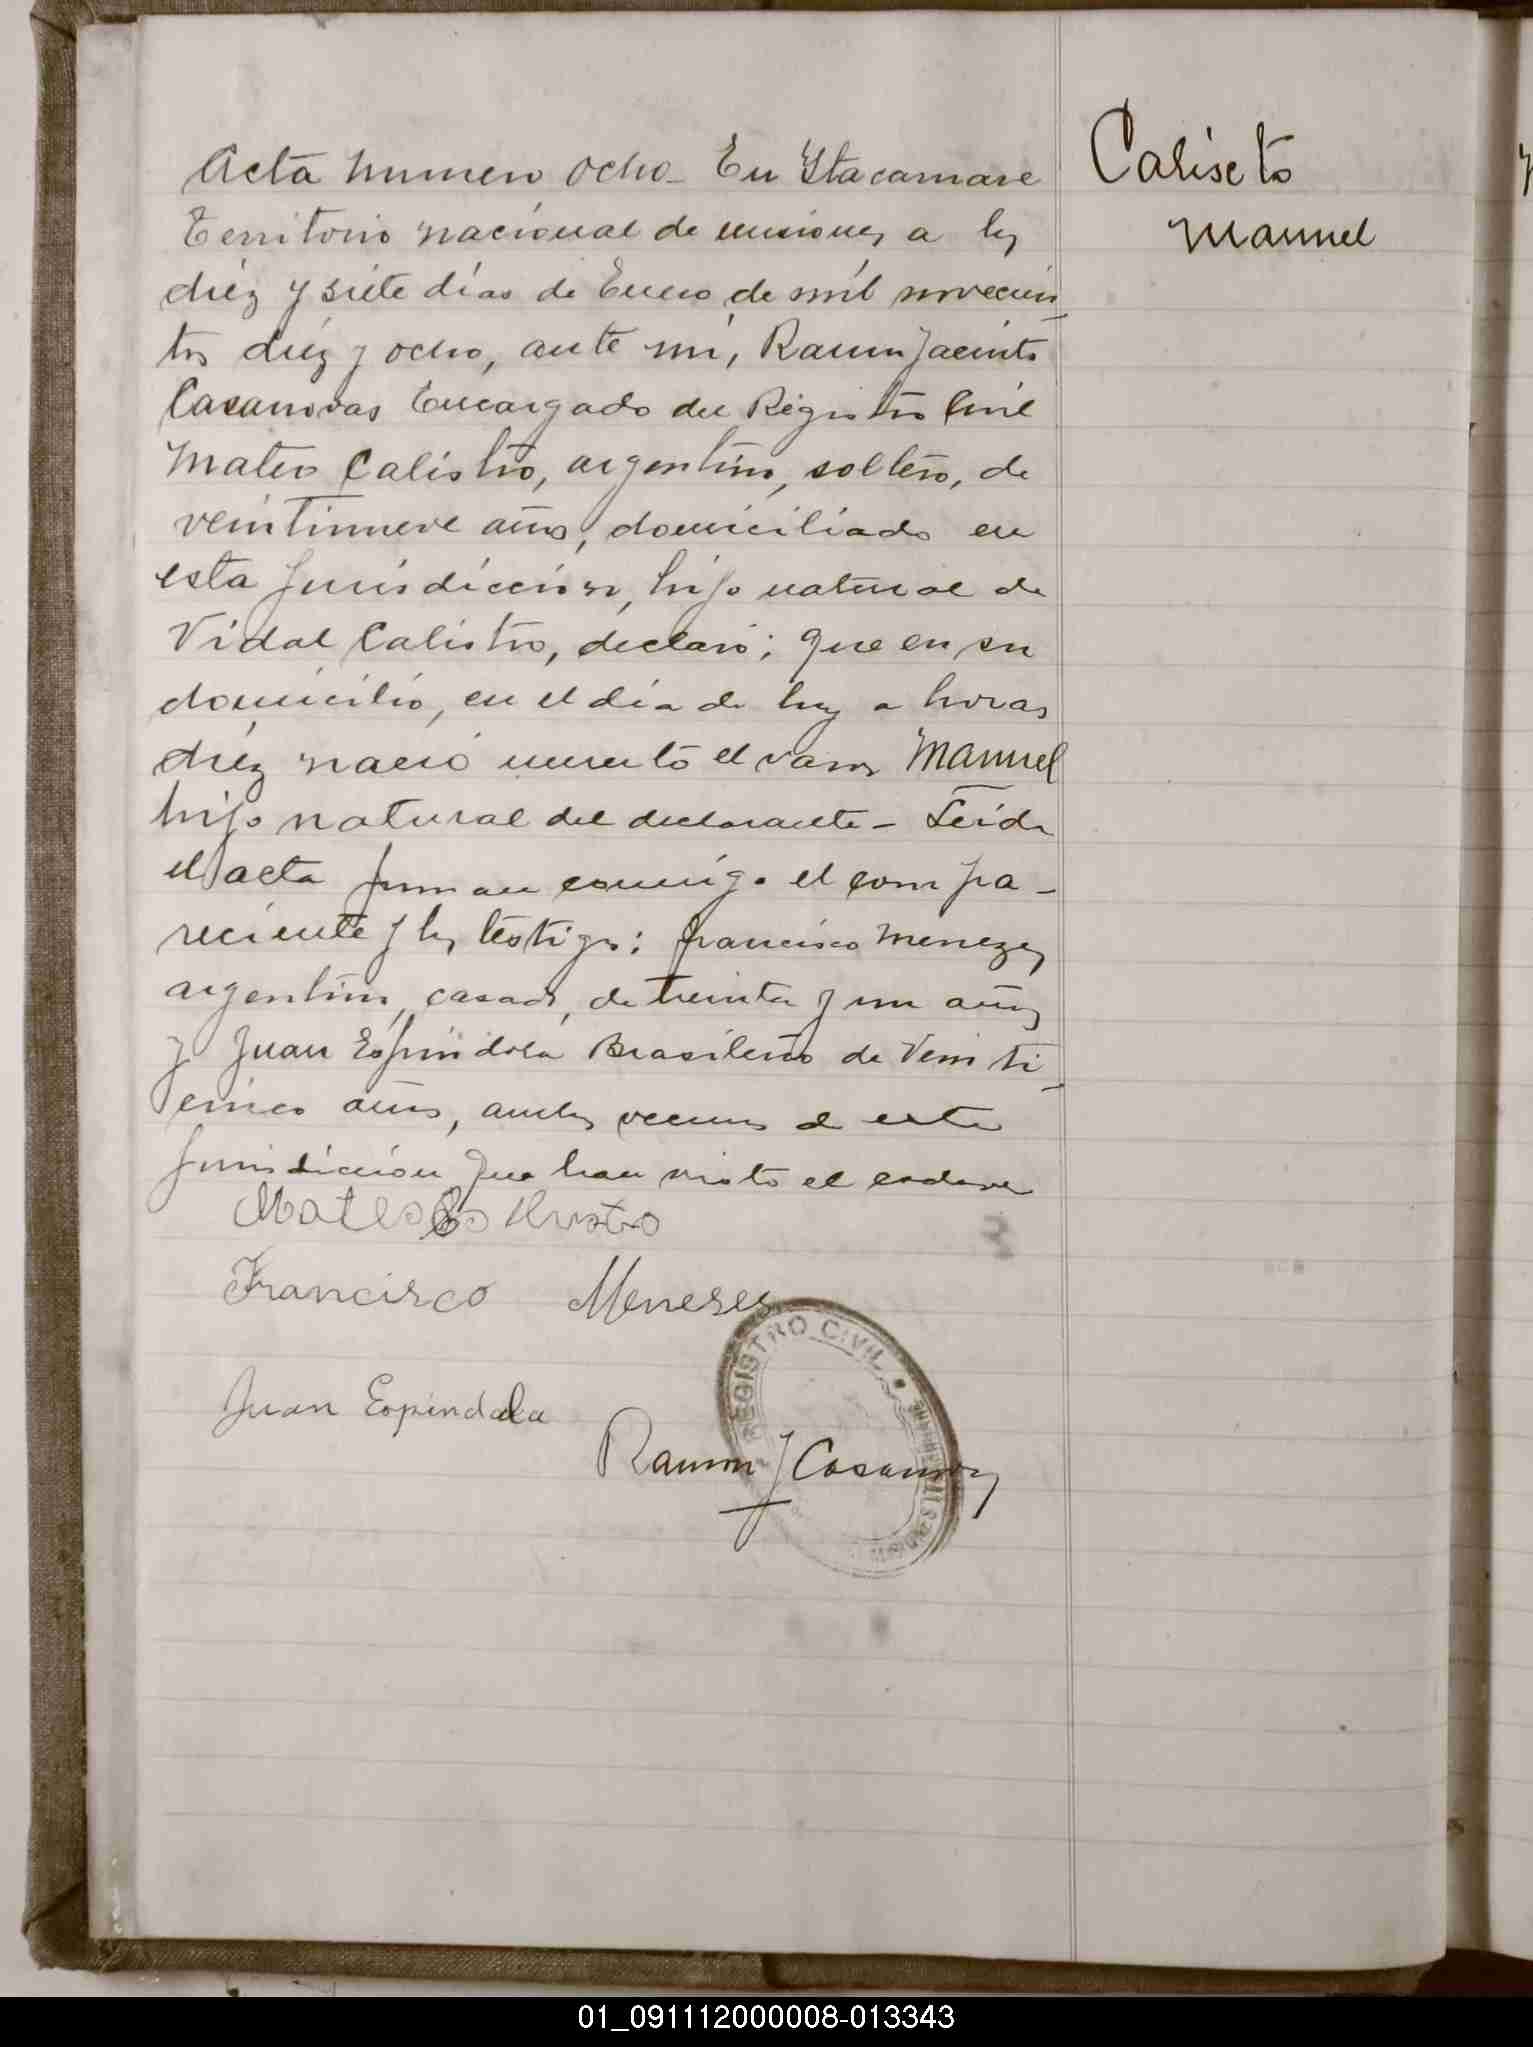 Acta numero ocho - En Ytacaruare
Territorio nacional de misiones a los
diez y siete dias de Enero de mil novecien
tos diez y ocho, ante mi, Ramon Jacinto
Casanovas Encargado del Registro Civil
Mateo Calistro, argentino, soltero, de
veintinueve años, domiciliado en
esta Jurisdiccion, hijo natural de
Vidal Calistro, declaró; que en su
domicilio, en el dia de hoy a horas
diez nació muerto el varon Manuel
hijo natural del declarante - Leida
el acta firman conmigo el compa-
reciente y los testigos: Francisco Menezes
argentino, casado, de treinta y un años
y Juan Espindola Brasilero de Veinti
cinco años, ambos vecinos de esta
Jurisdiccion que han visto el cadaver
Mateo
Francisco Meneses
Juan Espindola
Ramon J Casanovas
REGISTRO CIVIL
MISIONES
Caliseto
Manuel
01_091112000008-013343